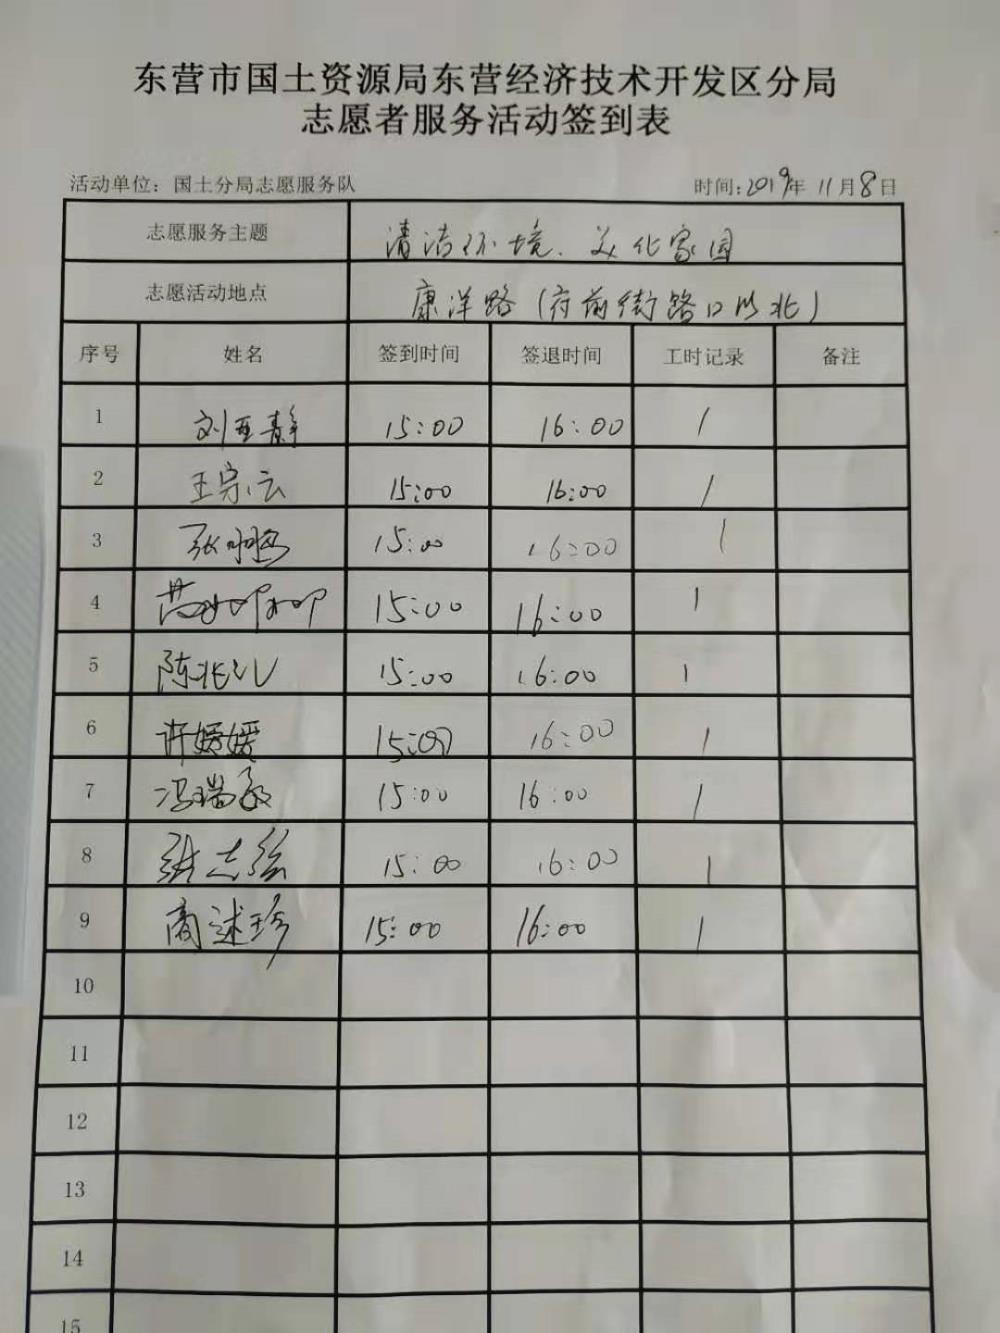 东营市国土资源局东营经济技术开发区分局
志愿者服务活动签到表
活动单位：国土分局志愿服务队 时间:2019年 11月8日
志愿服务主题 清洁环境、美化家园
志愿活动地点 康洋路(府前街路口以北)
序号 姓名 签到时间 签退时间 工时记录 备注
1 刘亚静 15:00 16:00 1
2 王宗云 15:00 16:00 1
3 张 15:00 16:00 1
4 15:00 16:00 1
5 陈兆 15:00 16:00 1
6 许媛媛 15:00 16:00 1
7 冯瑞敏 15:00 16:00 1
8 张志 15:00 16:00 1
9 商述珍 15:00 16:00 1
10
11
12
13
14
15